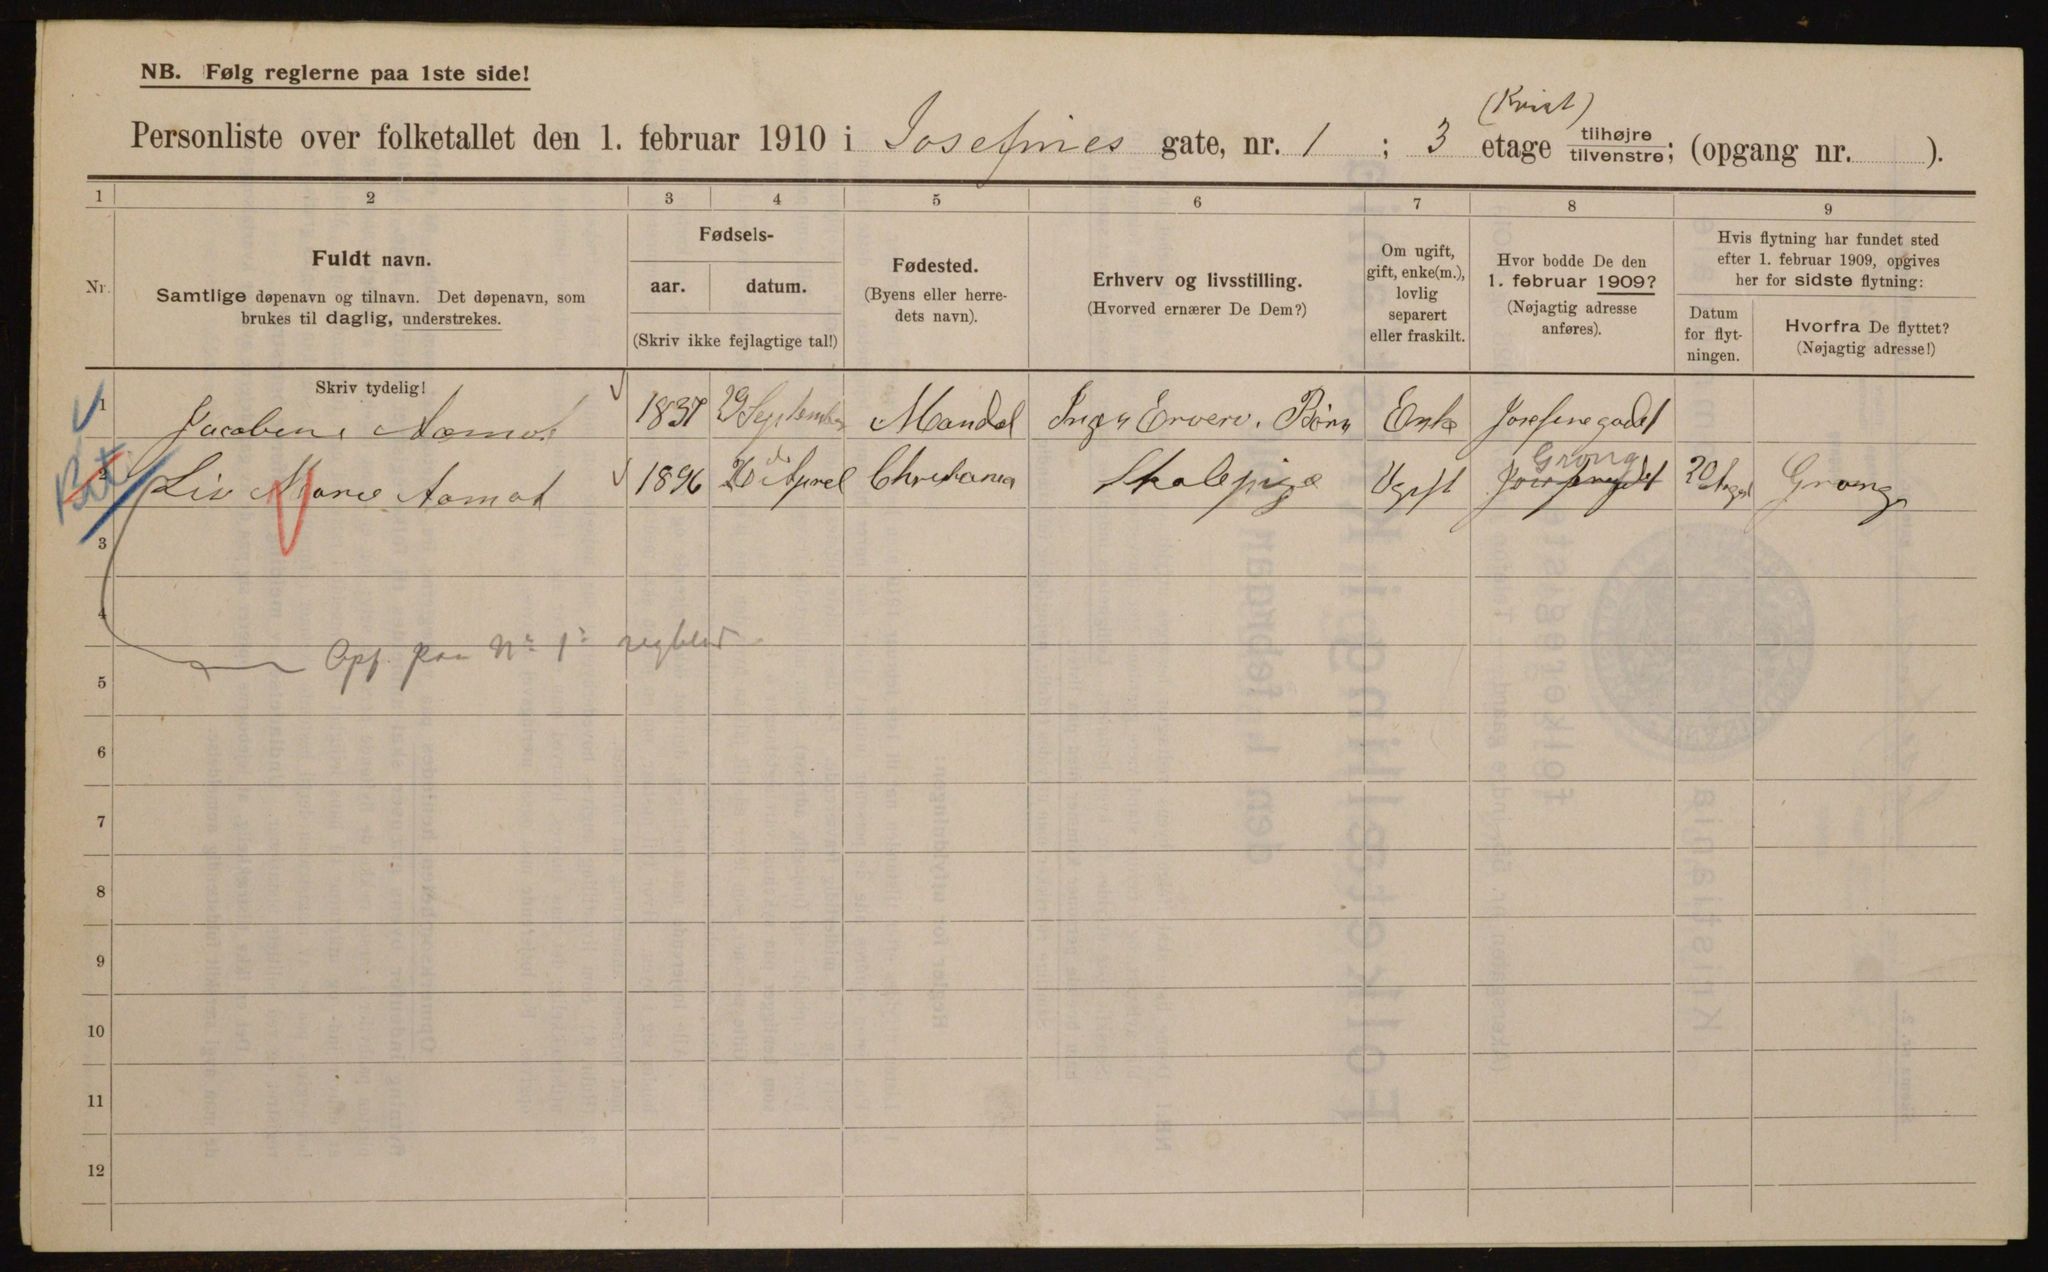 NB. Følg reglerne paa 1ste side!
(Kvist)
Personliste over folketallet den 1. februar 1910 i Josefines gate, nr. 1 ; 3 etage tilhøjre tilvenstre; (opgang nr. ).
1 2 3 4 5 6 7 8 9
Nr.
Fuldt navn.
Samtlige døpenavn og tilnavn. Det døpenavn, som
brukes til daglig, understrekes.
Fødsels-
aar. datum.
(Skriv ikke fejlagtige tal!)
Fødested.
(Byens eller herre-
dets navn).
Erhverv og livsstilling.
(Hvorved ernærer De Dem?)
Om ugift,
gift, enke(m.),
lovlig
separert
eller fraskilt.
Hvor bodde De den
1. februar 1909?
(Nøjagtig adresse
anføres).
Hvis flytning har fundet sted
efter 1. februar 1909, opgives
her for sidste flytning:
Datum
for flyt-
ningen.
Hvorfra De flyttet?
(Nøjagtig adresse!)
Skriv tydelig!
1 Jacobene Aamot 1837 29 September Mandal Ingen Erverv. Børn Enke Josefinegadet
Grong
2 Liv Marie Aamot 1896 26 April Christiania Skolepige Ugift Josefinegadet 20 August Grong
3
4
Opf. paa No 1
5
6
7
8
9
10
11
12